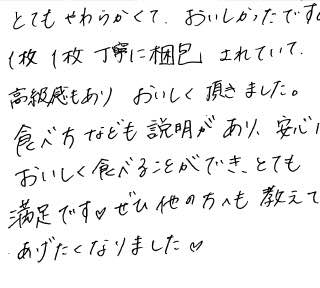 とてもやわらかくて、おいしかったです。
1枚1枚丁寧に梱包されていて、
高級感もあり おいしく頂きました。
食べ方なども説明があり、安心し
おいしく食べることができ、とても
満足です♡ ぜひ他の方へも教えて
あげたくなりました♡